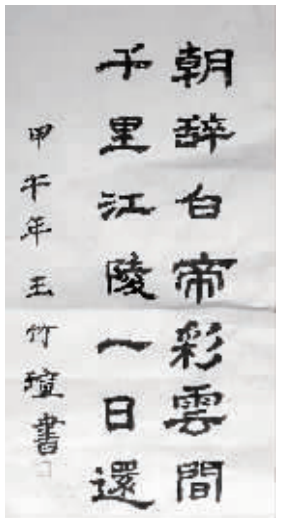 朝辞白帝彩雲間
千里江陵一日還
甲午年王竹瑄書